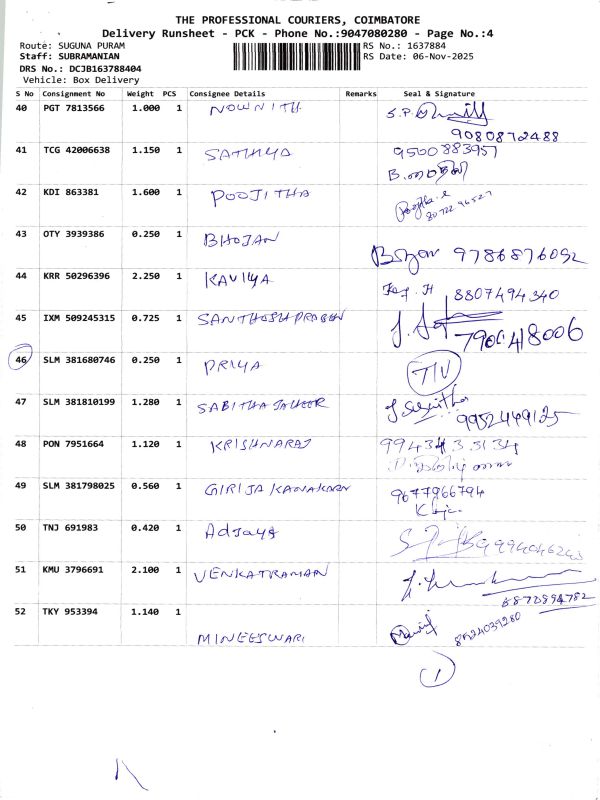 THE PROFESSIONAL COURIERS, COIMBATORE
Delivery Runsheet - PCK - Phone No.:9047080280 - Page No.:4
Route: SUGUNA PURAM RS No.: 1637884
Staff: SUBRAMANIAN RS Date: 06-Nov-2025
DRS No.: DCJB163788404
Vehicle: Box Delivery
S No Consignment No Weight PCS Consignee Details Remarks Seal & Signature
40 PGT 7813566 1.000 1 NOWNITH S.P.
9080872488
41 TCG 42006638 1.150 1 SATHYA 9500883957
42 KDI 863381 1.600 1 POOJITHA
43 OTY 3939386 0.250 1 BHOJAN 9786876092
44 KRR 50296396 2.250 1 KAVIYA 8807494340
45 IXM 509245315 0.725 1
46 SLM 381680746 0.250 1 PRIYA
47 SLM 381810199 1.280 1 SABITHA JAHEER 9952449125
48 PON 7951664 1.120 1 KRISHNARAJ
49 SLM 381798025 0.560 1 GIRIJA 9677966794
50 TNJ 691983 0.420 1 ADJAYA
51 KMU 3796691 2.100 1 VENKATRAMAN
52 TKY 953394 1.140 1
MINEESWARI 8524039280
1